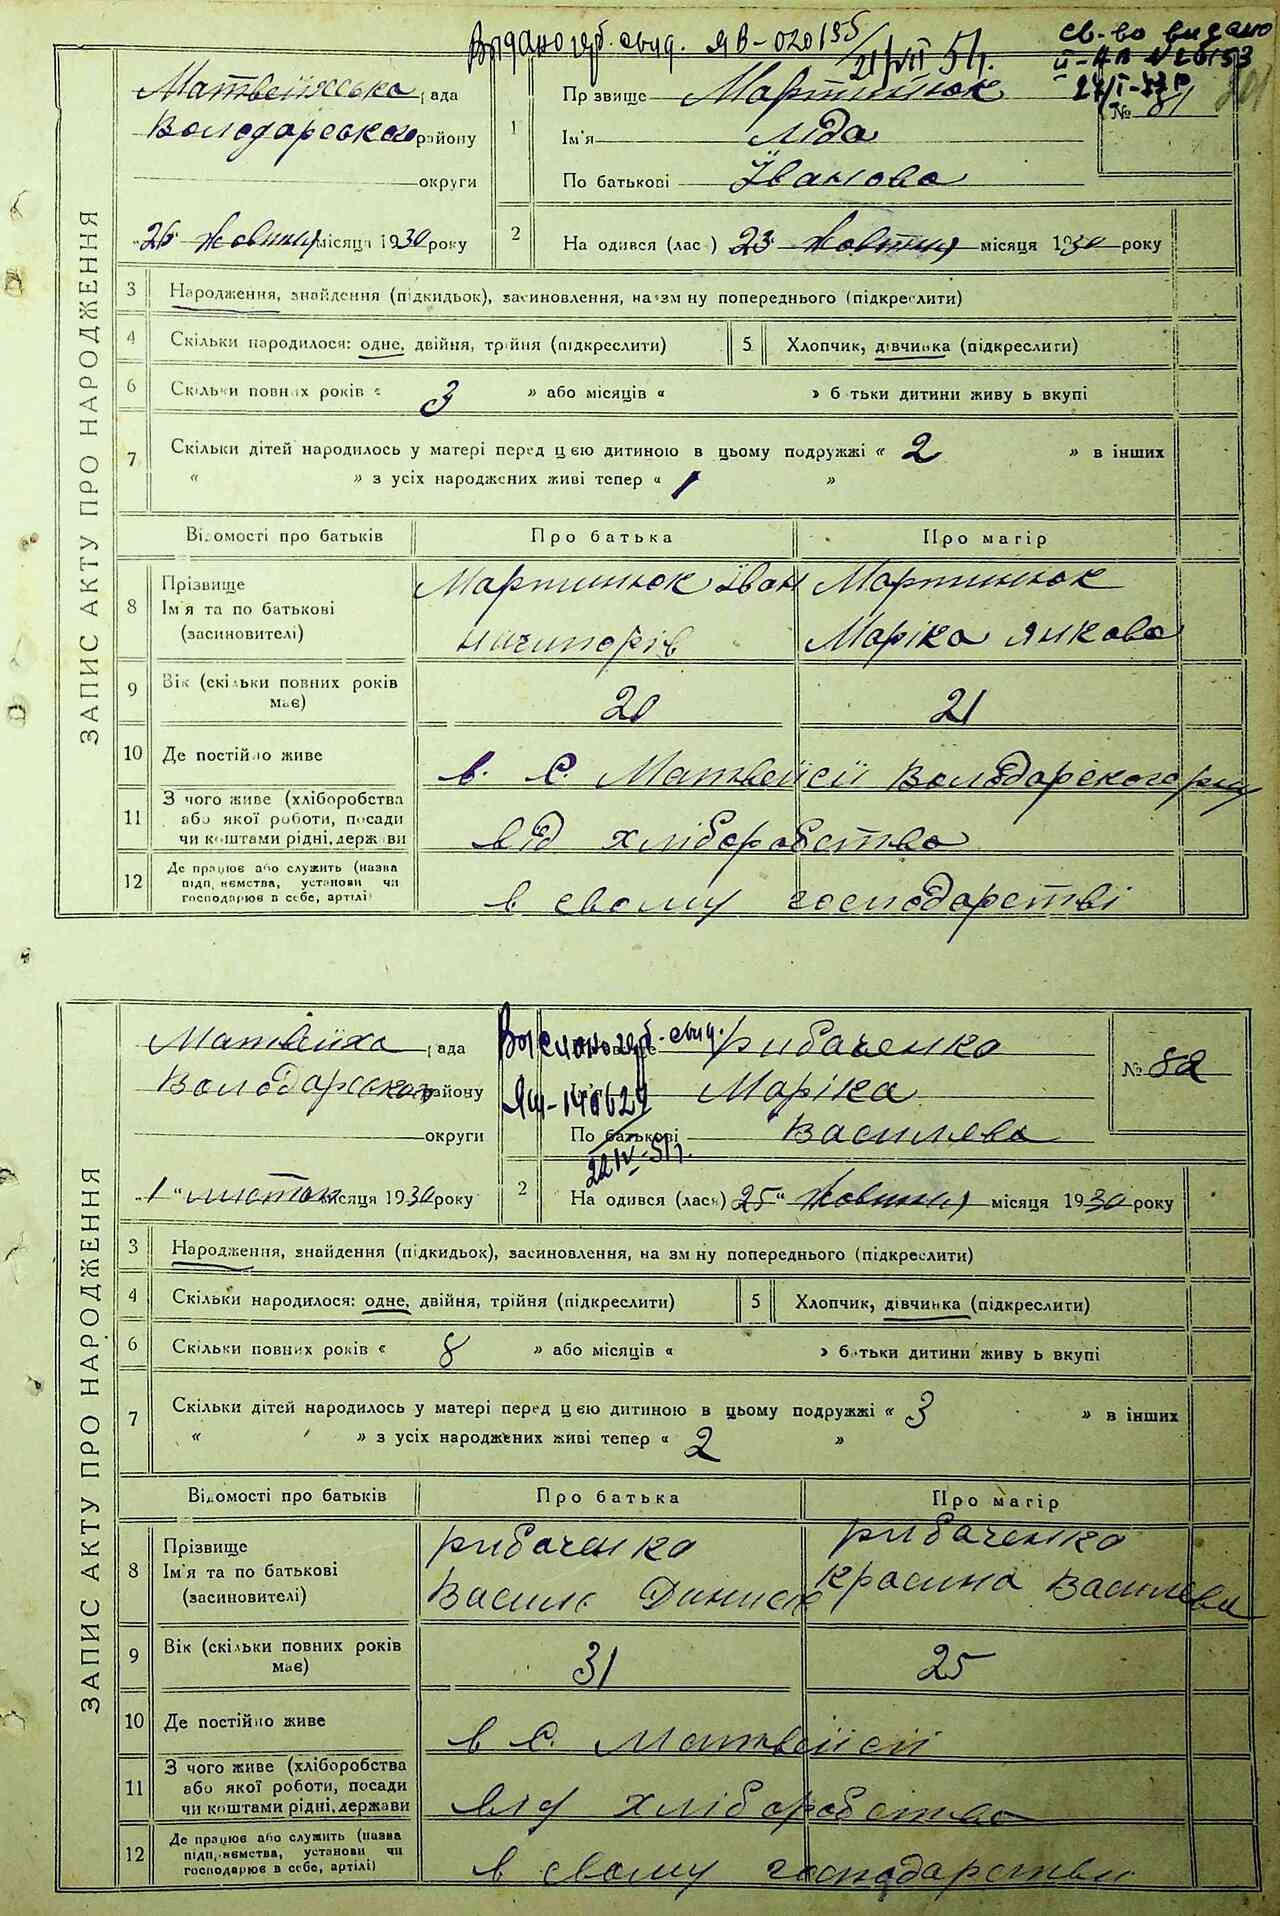 Выдано гер. свид. ЯВ-020135
21/VII 51г.
Св-во видано
II-АП №20153
ЗАПИС АКТУ ПРО НАРОДЖЕННЯ
Матвеїхська рада
Володарського району
округи
„26" жовтня місяця 1930 року
1
Прізвище Мартинюк
Ім'я Ліда
По батькові Їванова
№ 81
2
На одився (лас ) „23" жовтня місяця 1930 року
3 Народження, знайдення (підкидьок), засиновлення, на зм ну попереднього (підкреслити)
4 Скільки народилося: одне, двійня, трійня (підкреслити)
5 Хлопчик, дівчинка (підкреслити)
6 Скільки повних років « 3 » або місяців « » б тьки дитини живу ь вкупі
7 Скільки дітей народилось у матері перед цією дитиною в цьому подружжі « 2 » в інших
« » з усіх народжених живі тепер « 1 »
Відомості про батьків
Про батька
Про матір
8 Прізвище
Ім'я та по батькові
(засиновителі)
Мартинюк Їван
Ничипорів
Мартинюк
Маріка Янкова
9 Вік (скільки повних років має)
20
21
10 Де постійно живе
в. с. Матвеїсії Володарского рну
11 З чого живе (хліборобства
або якої роботи, посади
чи коштами рідні, держави
від хліборобства
12 Де працює або служить (назва
підп, немства, установи чи
господарює в себе, артілі)
в свому господарстві
ЗАПИС АКТУ ПРО НАРОДЖЕННЯ
Матвіїха рада
Володарського району
округи
„1" листоп місяця 1930 року
Выслано гер. свид.
ЯШ-140629
22 IV-51г.
Рибаченко
Маріка
По батькові Василева
№ 82
2
На одився (лась) „25" жовтня місяця 1930 року
3 Народження, знайдення (підкидьок), засиновлення, на зм ну попереднього (підкреслити)
4 Скільки народилося: одне, двійня, трійня (підкреслити)
5 Хлопчик, дівчинка (підкреслити)
6 Скільки повних років « 8 » або місяців « » б тьки дитини живу ь вкупі
7 Скільки дітей народилось у матері перед цією дитиною в цьому подружжі « 3 » в інших
« » з усіх народжених живі тепер « 2 »
Відомості про батьків
Про батька
Про матір
8 Прізвище
Ім'я та по батькові
(засиновителі)
Рибаченко
Василь Динисів
Рибаченко
Красина Василева
9 Вік (скільки повних років має)
31
25
10 Де постійно живе
в с. Матвеїїсії
11 З чого живе (хліборобства
або якої роботи, посади
чи коштами рідні, держави
від хліборобства
12 Де працює або служить (назва
підп, немства, установи чи
господарює в себе, артілі)
в свому господарстви